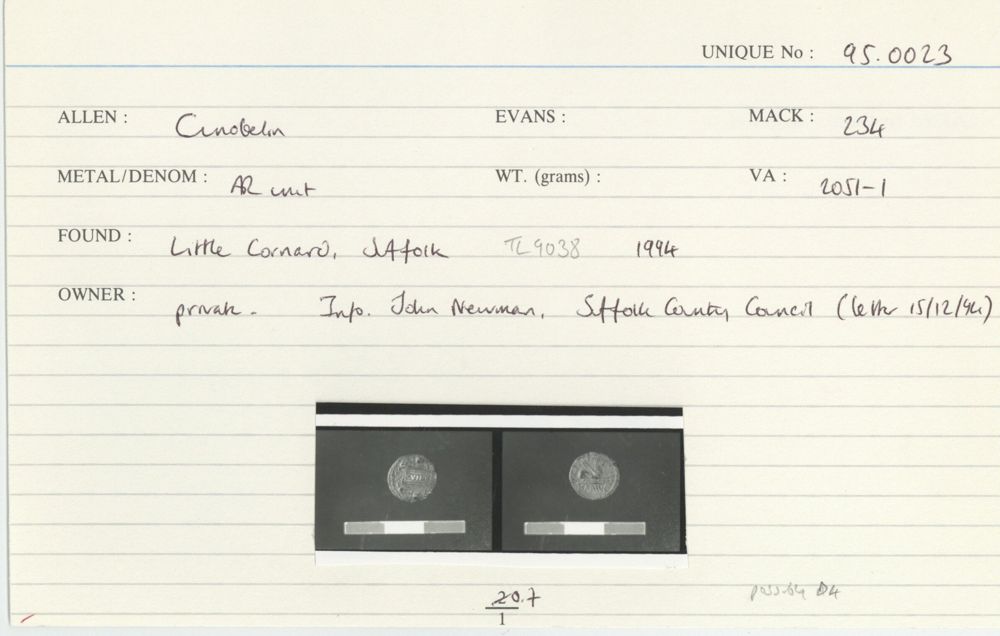 UNIQUE No : 95.0023
ALLEN : Cunobelin EVANS : MACK : 234
METAL/DENOM : AR unit WT. (grams) : VA : 2051-1
FOUND : Little Cornard, Suffolk TL9038 1994
OWNER : private. Info. John Newman, Suffolk County Council (letter 15/12/94)
20.7
1
possibly D4